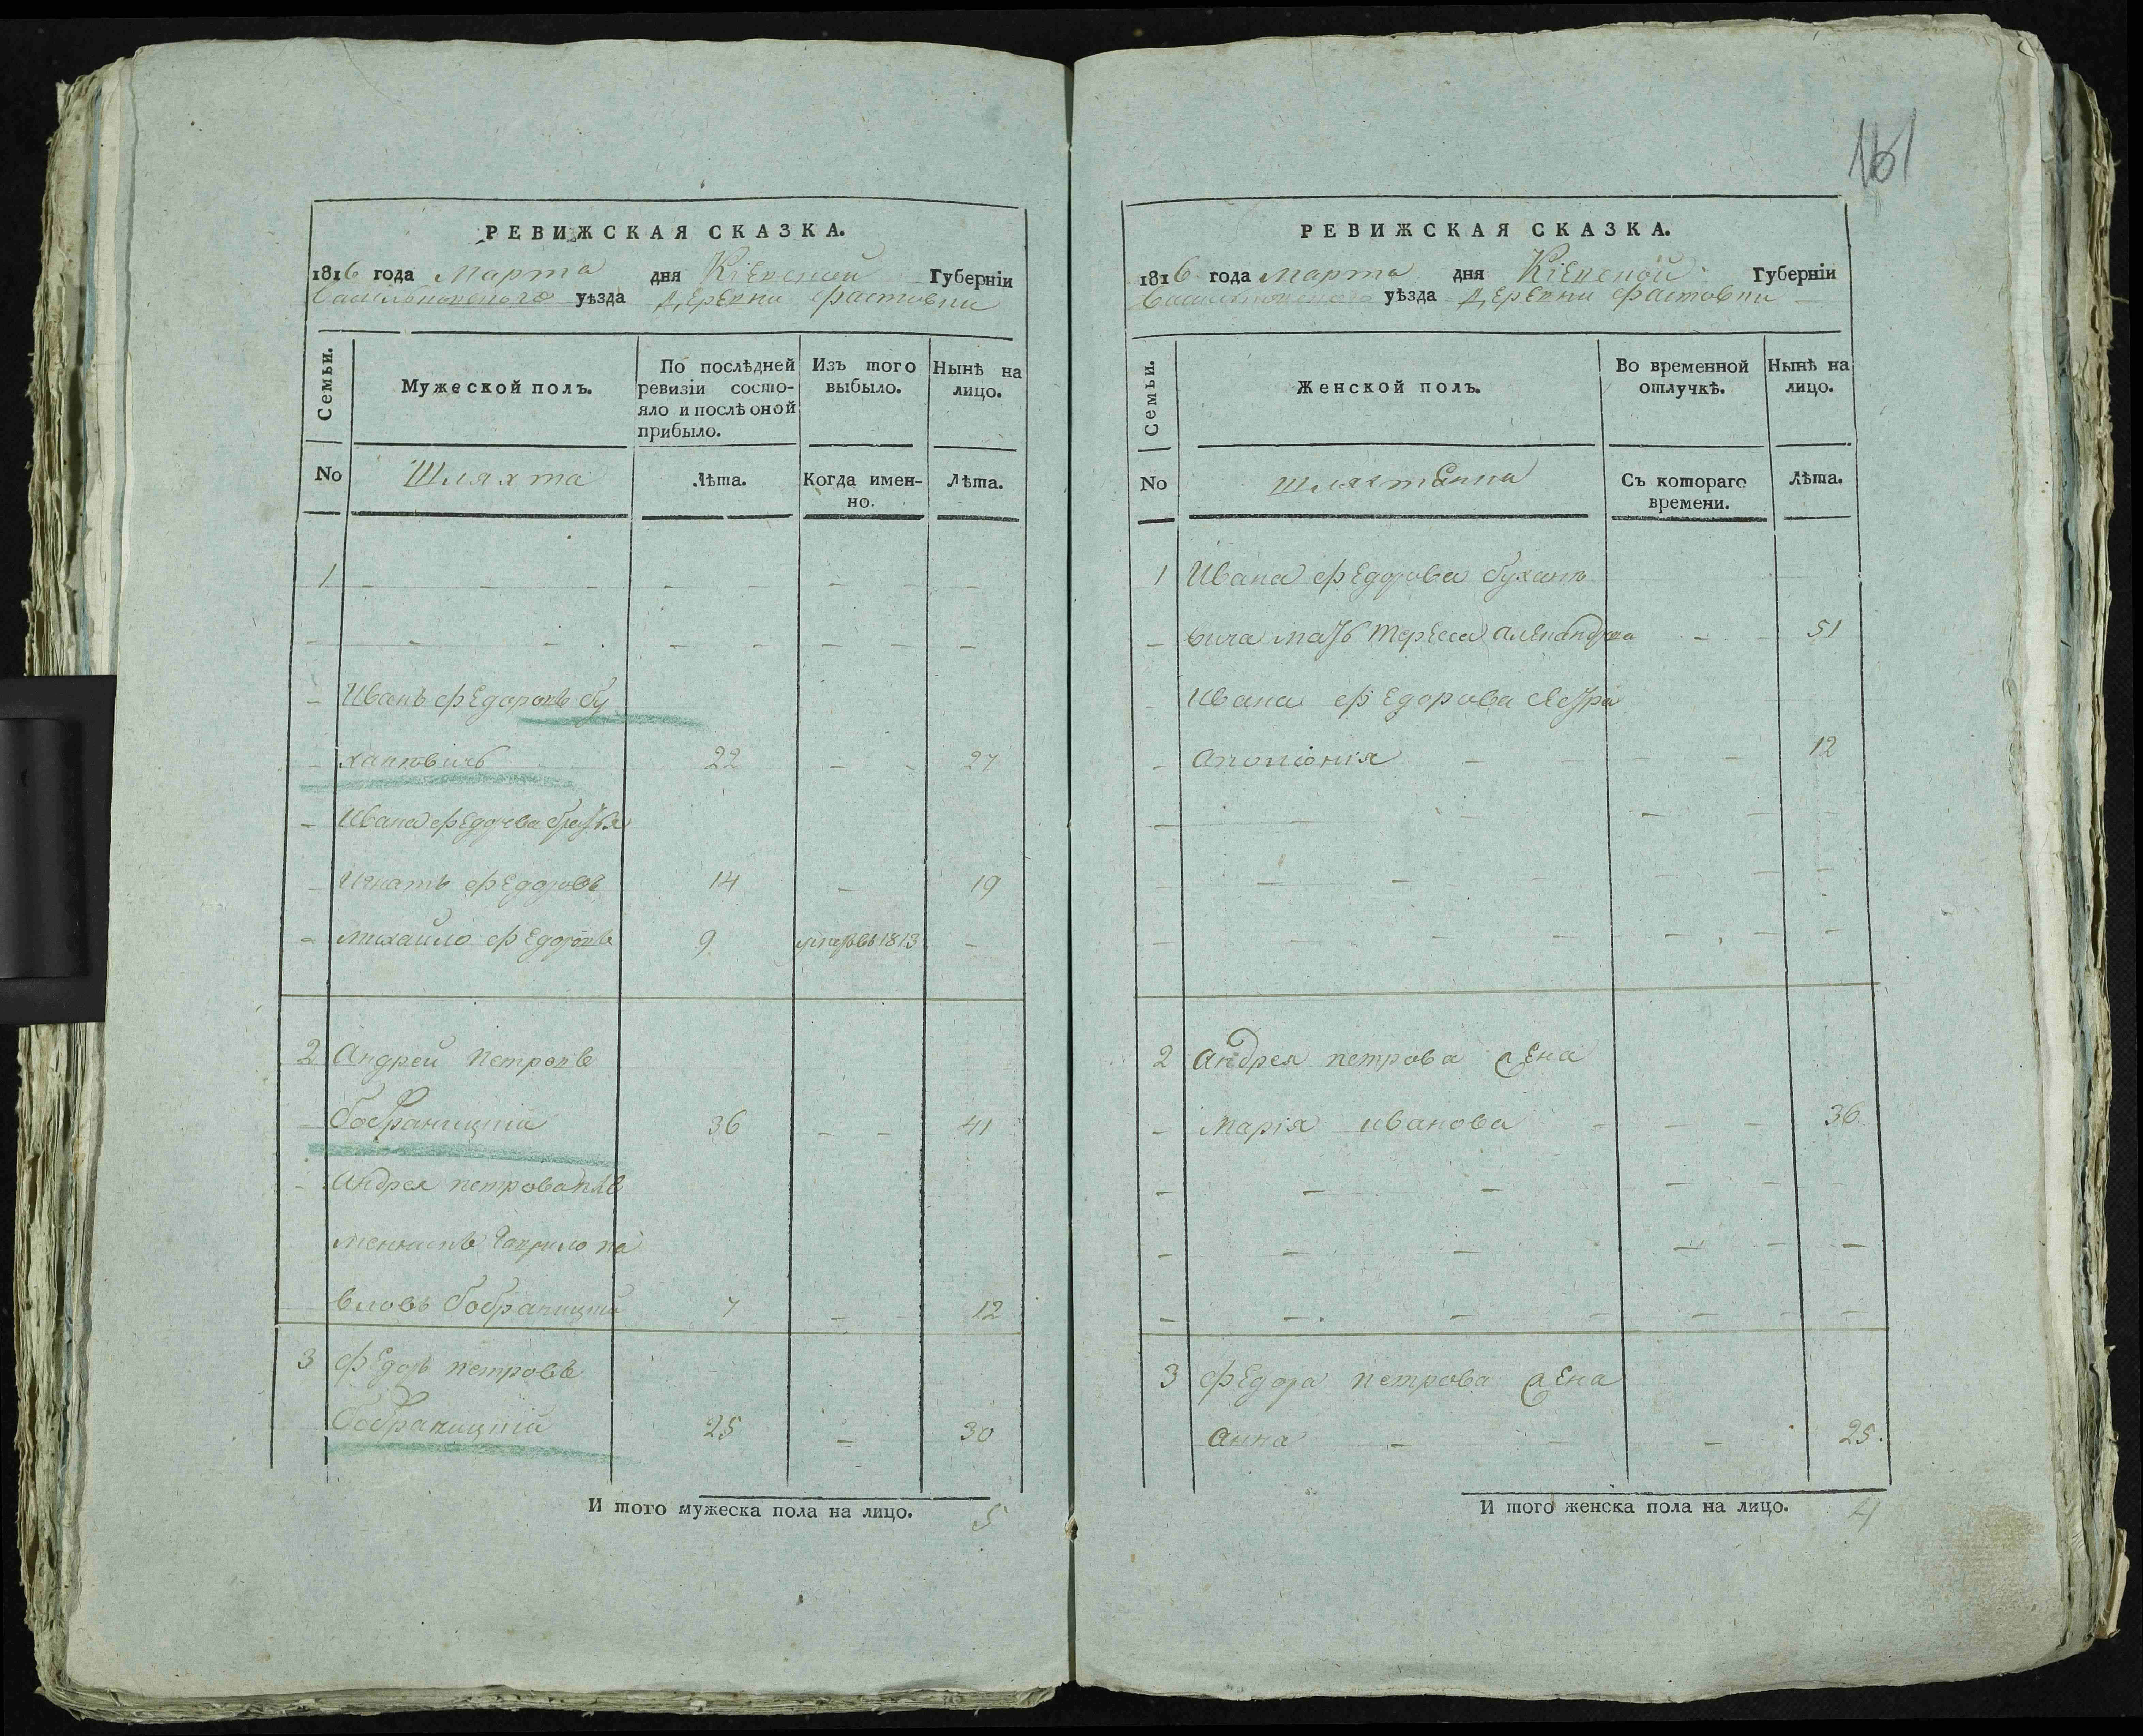 РЕВИЖСКАЯ СКАЗКА.
1816 года Марта дня Кіевской Губерніи
Васильковского уѣзда Деревни Фастовки
Семьи.
Мужеской полъ.
По послѣдней ревизіи состояло и послѣ оной прибыло.
Изъ того выбыло.
Нынѣ на лицо.
No
Шляхта
Лѣта.
Когда именно.
Лѣта.
1
Иванъ Федоровъ Бу
хановичъ 22 27
Ивана Федорова братья
Игнатъ Федоровъ 14 19
Михайло Федоровъ 9 умеръ въ 1813
2 Андрей Петровъ
36 41
Андрея Петрова пле
менникъ Гаврило Па
вловъ 7 12
3 Федоръ Петровъ
25 30
И того мужеска пола на лицо. 5
161
РЕВИЖСКАЯ СКАЗКА.
1816 года Марта дня Кіевской Губерніи
Васильковского уѣзда Деревни Фастовки
Семьи.
Женской полъ.
Во временной отлучкѣ.
Нынѣ на лицо.
No
Съ котораго времени.
Лѣта.
1 Ивана Федорова
вича мать Тереса 51
Ивана Федорова сестра
Аполонія 12
2 Андрея Петрова жена
Марія Иванова 36
3 Федора Петрова жена
Анна 25.
И того женска пола на лицо. 4